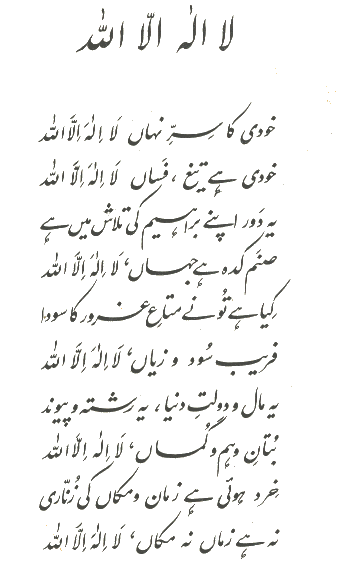 لا الٰہ الّا اللہ
خودی کا سِرِّ نہاں لَا اِلٰہَ اِلَّا اللہ
خودی ہے تیغ، فَساں لَا اِلٰہَ اِلَّا اللہ
یہ دَور اپنے براہیم کی تلاش میں ہے
صنَم کدہ ہے جہاں، لَا اِلٰہَ اِلَّا اللہ
کِیا ہے تُو نے متاعِ غرور کا سودا
فریب سُود و زیاں، لَا اِلٰہَ اِلَّا اللہ
یہ مال و دولتِ دنیا، یہ رشتہ و پیوند
بُتانِ وہم و گُماں، لَا اِلٰہَ اِلَّا اللہ
خِرد ہوئی ہے زمان و مکاں کی زُنّاری
نہ ہے زماں نہ مکاں، لَا اِلٰہَ اِلَّا اللہ